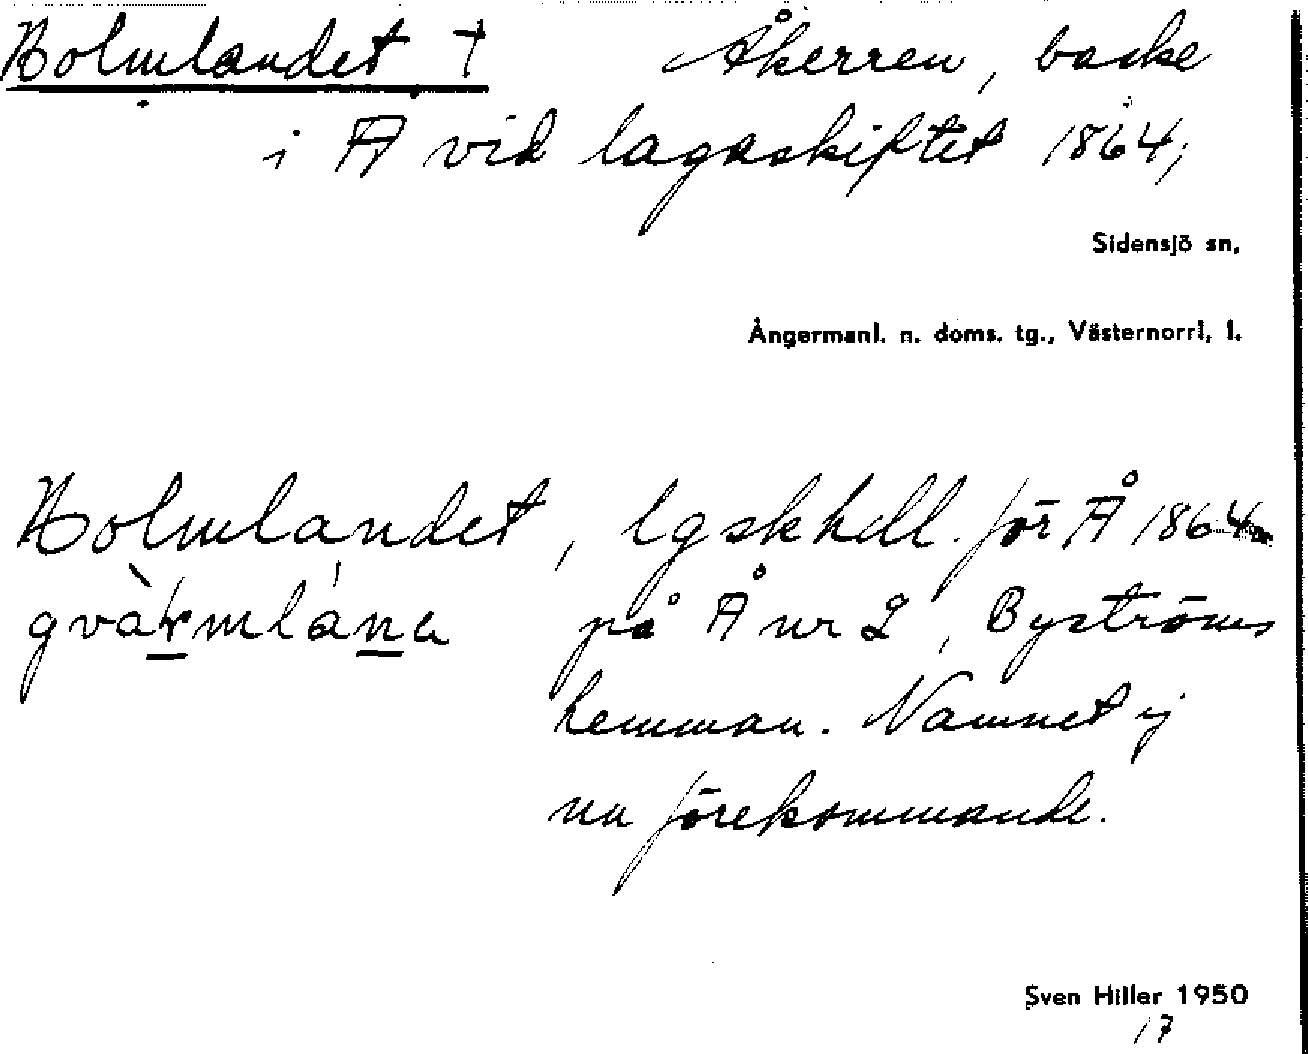 Holmlandet † Åkerren, backe
i A vid lagaskiftet 1864;
Sidensjö sn,
Ångermanl. n. doms. tg., Västernorrl. l.
Holmlandet, lgskhdl. för Å 1864
på Å nr 2, Byströms
hemman. Namnet ej
nu förekommande.
Sven Hiller 1950
17